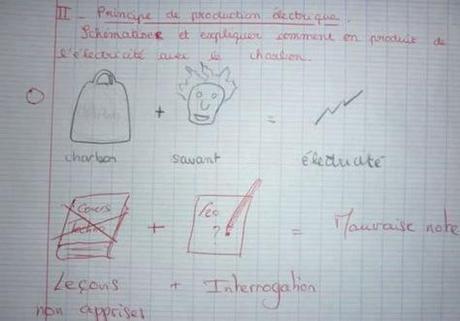 II - Principe de production électrique.
Schématiser et expliquer comment on produit de
l'électricité avec le charbon.
+ =
charbon savant électricité
Cours
Techno
Leo
?
+ = Mauvaise note
Leçons + Interrogation
non apprises